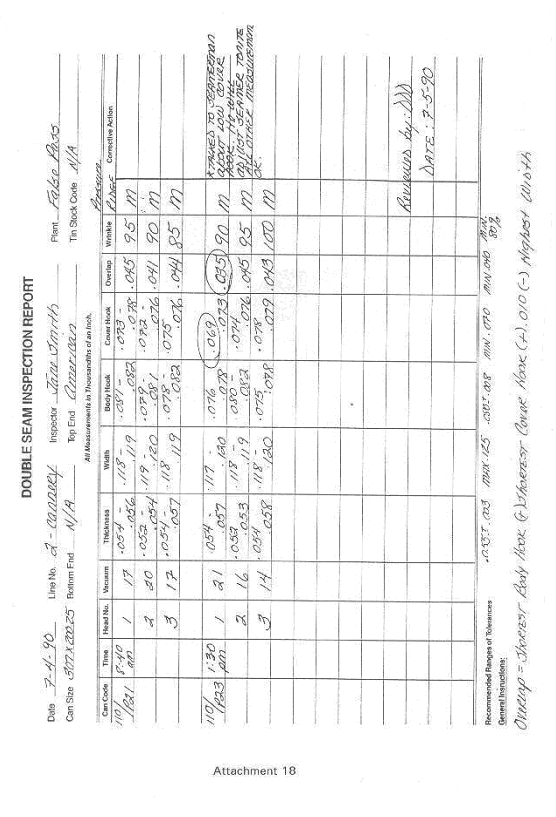 DOUBLE SEAM INSPECTION REPORT
Date 7-4-90 Line No. 2 - Cannery Inspector Jane Smith Plant False Pass
Can Size 307X200.25 Bottom End N/A Top End American Tin Stock Code N/A
All Measurements in Thousandths of an Inch.
Can Code Time Head No. Vacuum Thickness Width Body Hook Cover Hook Overlap Wrinkle Pressure Ridge Corrective Action
110/ P221 8:40 am 1 17 .054 - .056 .118 - .119 .081 - .082 .073 - .078 .045 95 M
2 20 .052 .054 .119 - .120 .079 .081 .072 - .076 .041 90 M
3 17 .054 - .057 .118 .119 .078 - .082 .075 .076 .044 85 M
110/ P223 1:30 pm 1 21 .054 - .057 .117 - .120 .076 .078 .069 .073 .035 90 M
2 16 .052 .053 .118 - .119 .080 - .082 .074 .076 .045 95 M
3 14 .054 .058 .118 - .120 .075 .078 .078 .079 .043 100 M
TALKED TO SEAMERMAN
ABOUT LOW COVER
HOOK. HE WILL
ADJUST SEAMER
ALL OTHER MEASUREMENTS
OK.
Reviewed by:
DATE: 7-5-90
Recommended Ranges of Tolerances MAX .125 MIN. .070 MIN .040 MIN. 80%
General Instructions:
Overlap = Shortest Body Hook (+) Shortest Cover Hook (+) .010 (-) Highest Width
Attachment 18